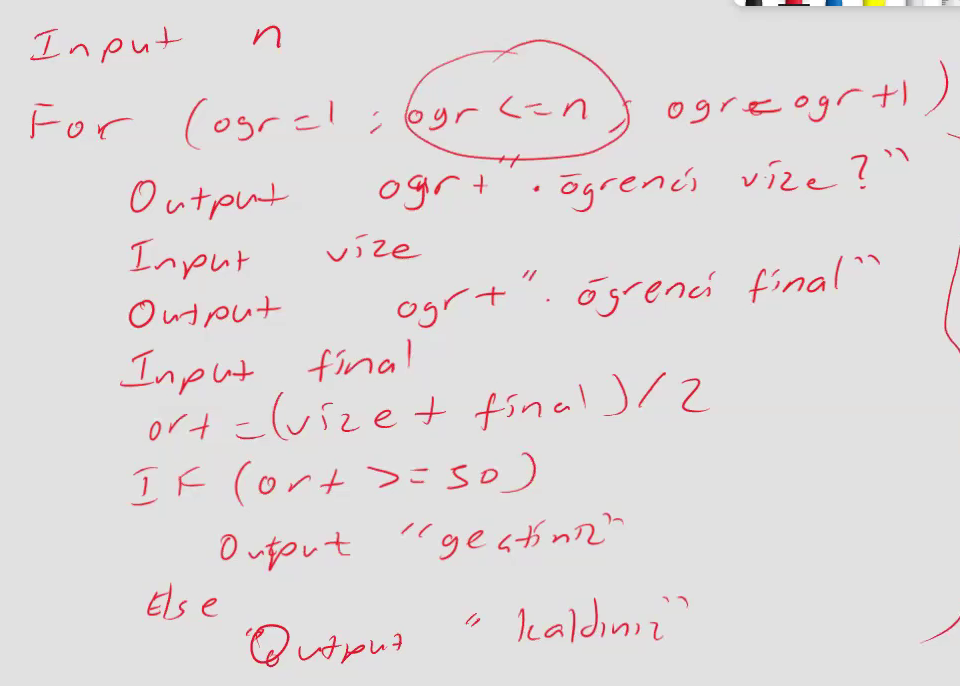 Input n
For (ogr=1 ; ogr <=n ; ogr = ogr +1)
Output ogr + ". öğrenci vize?"
Input vize
Output ogr + ". öğrenci final"
Input final
ort =(vize + final)/2
IF (ort >= 50)
Output "geçtiniz"
Else
Output "kaldınız"